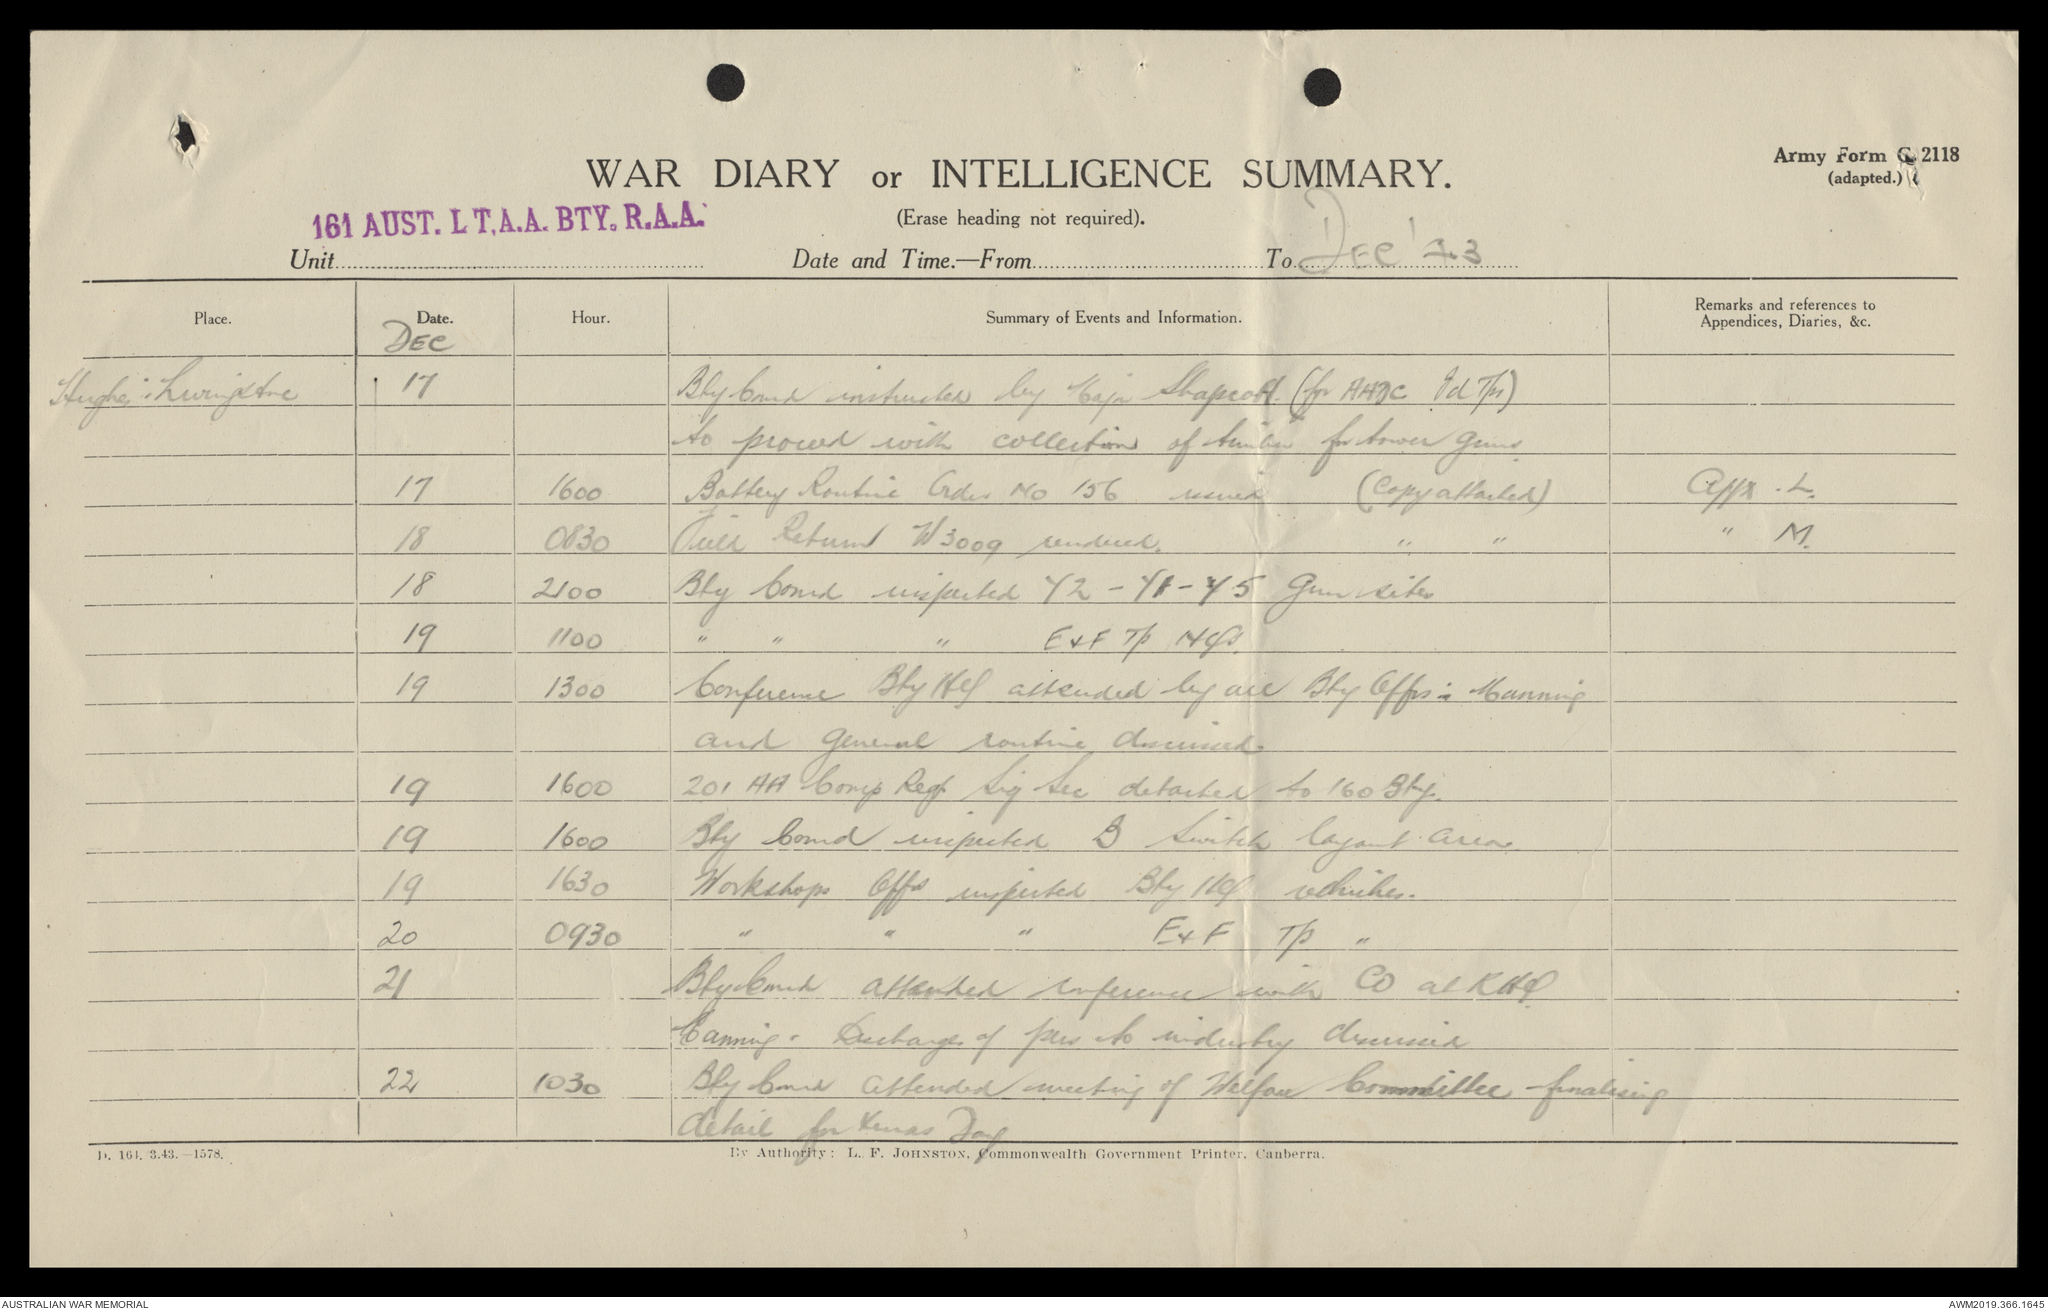 WAR DIARY or INTELLIGENCE SUMMARY.
Army Form C. 2118
(adapted.)
(Erase heading not required).
161 AUST. LT.A.A. BTY. R.A.A.
Unit Date and Time.—From To DEC '43
Place. Date. Hour. Summary of Events and Information. Remarks and references to
Appendices, Diaries, &c.
DEC
Hughes & Livingstone 17 Bty Comd instructed by Major Shapcott (for AADC Tps)
to proceed with collection of timber for tower guns
17 1600 Battery Routine Order No 156 issued (Copy attached) Appx. L.
18 0830 Field Return W3009 rendered. " " " M.
18 2100 Bty Comd inspected Y2 - Y1 - Y5 Gun sites
19 1100 " " " E & F Tp HQs.
19 1300 Conference Bty HQ attended by all Bty Offrs: Manning
and general routine discussed.
19 1600 201 AA Comp Regt Sig Sec detached to 160 Bty.
19 1600 Bty Comd inspected B Switch layout area.
19 1630 Workshops Offr inspected Bty HQ vehicles.
20 0930 " " " E & F Tp "
21 Bty Comd attended conference with CO at RHQ.
Manning - Discharge of pers to industry discussed
22 1030 Bty Comd attended meeting of Welfare Committee finalising
detail for Xmas Day
D. 161. 3.43.—1578. By Authority: L. F. JOHNSTON, Commonwealth Government Printer, Canberra.
AUSTRALIAN WAR MEMORIAL AWM2019.366.1645